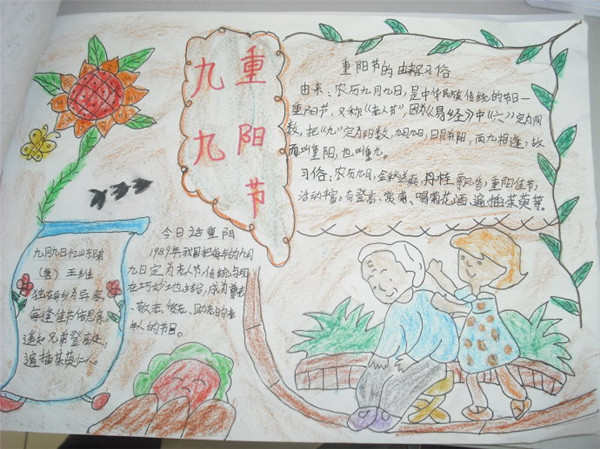 九九
重阳节
重阳节的由来习俗
由来:农历九月九日,是中华民族传统的节日—
重阳节,又称“老人节”,因为《易经》中“六”定为阴
数,把“九”定为阳数,九月九日,日月并阳,两九相逢,故
而叫重阳,也叫重九。
习俗:农历九月,金秋送爽,丹桂飘香,重阳佳节,
活动丰富,有登高,赏菊,喝菊花酒,遍插茱萸等。
今日话重阳
1989年我国把每年的九月
九日定为老人节,传统与现
代巧妙地结合,成为尊老
、敬老、爱老、助老的老
年人的节日。
九月九日忆山东兄弟
(唐)王维
独在异乡为异客,
每逢佳节倍思亲。
遥知兄弟登高处,
遍插茱萸少一人。